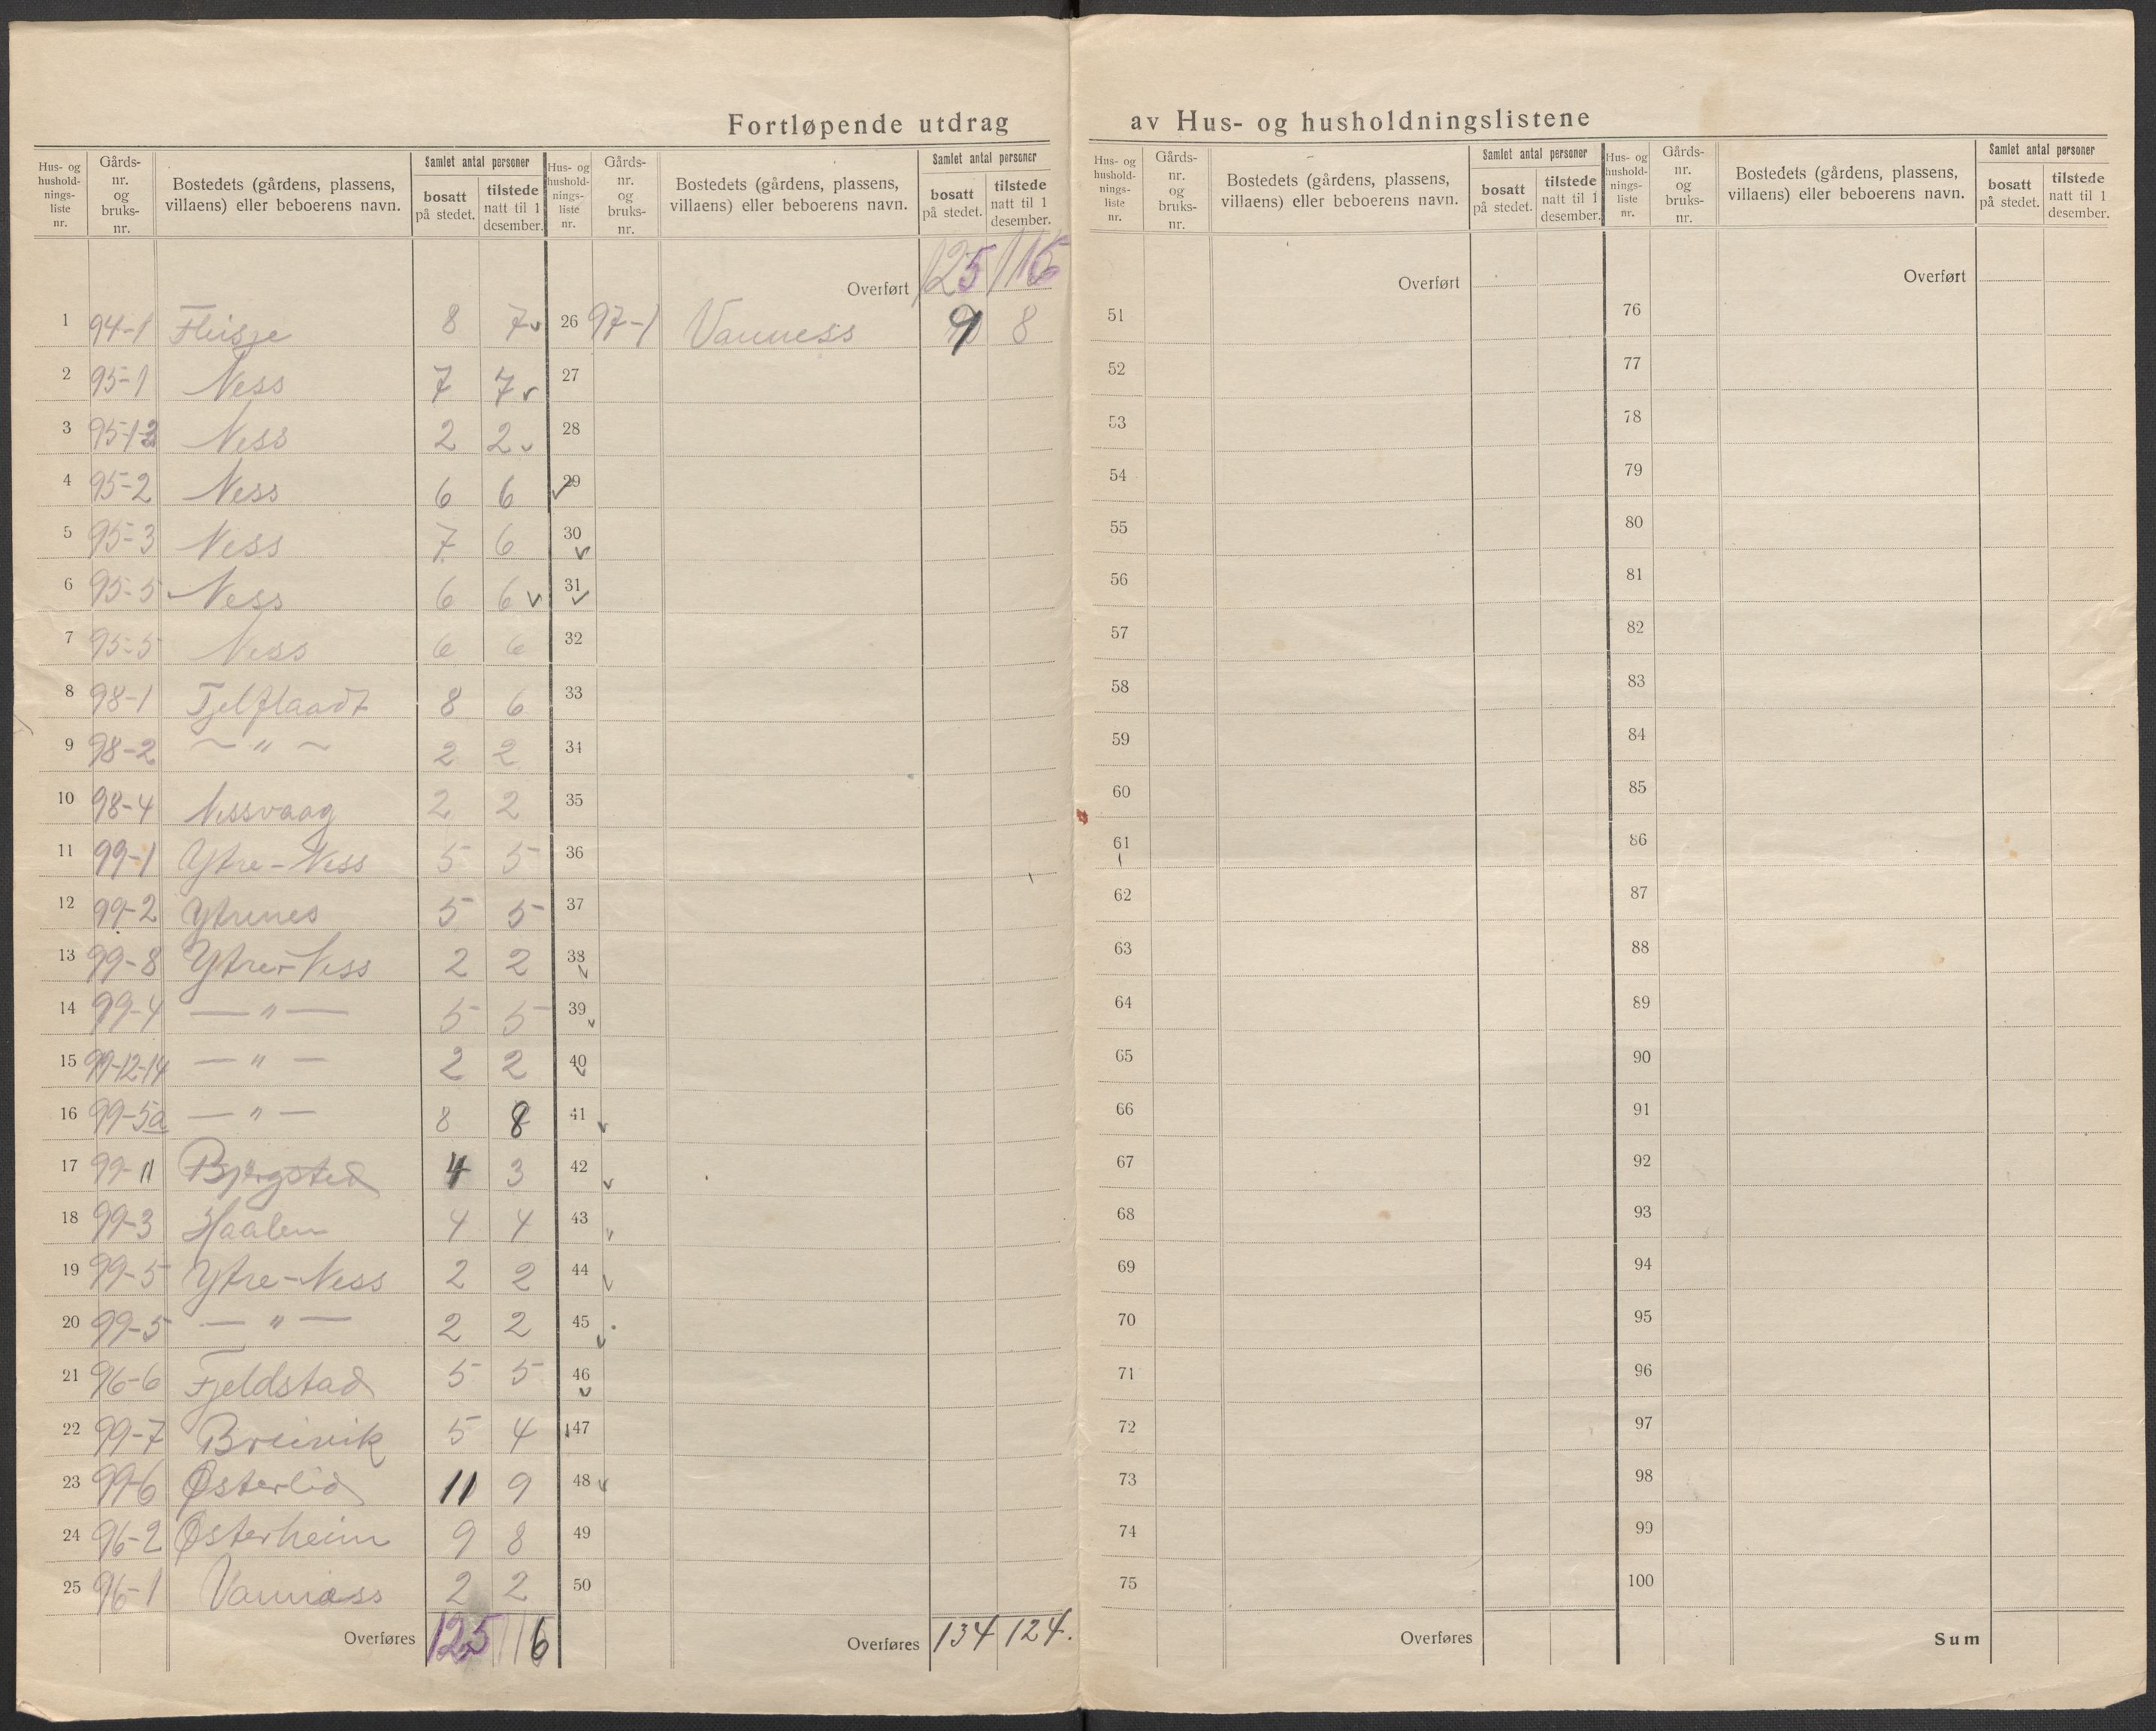 Fortløpende utdrag av Hus- og husholdningslistene
Hus- og hushold-nings-liste nr. | Gårds-nr. og bruks-nr. | Bostedets (gårdens, plassens, villaens) eller beboerens navn. | Samlet antal personer | bosatt på stedet. | tilstede natt til 1 desember.
1 94-1 Fleisje 8 7 v
2 95-1 Ness 7 7 v
3 95-1-2 Ness 2 2 v
4 95-2 Ness 6 6 v
5 95-3 Ness 7 6
6 95-5 Ness 6 6 v
7 95-5 Ness 6 6
8 98-1 Tjelflaadt 8 6
9 98-2 ~ " ~ 2 2
10 98-4 Nessvaag 2 2
11 99-1 Ytre-Ness 5 5
12 99-2 Ytrenes 5 5
13 99-8 Ytre-Ness 2 2
14 99-4 — " — 5 5
15 99-12-14 — " — 2 2
16 99-5a — " — 8 8
17 99-11 Bjørgsted 4 3
18 99-3 Haalen 4 4
19 99-5 Ytre-Ness 2 2
20 99-5 — " — 2 2
21 96-6 Fjeldstad 5 5
22 99-7 Breivik 5 4
23 99-6 Østerlid 11 9
24 96-2 Østerheim 9 8
25 96-1 Vanness 2 2
Overføres 125 116
Hus- og hushold-nings-liste nr. | Gårds-nr. og bruks-nr. | Bostedets (gårdens, plassens, villaens) eller beboerens navn. | Samlet antal personer | bosatt på stedet. | tilstede natt til 1 desember.
Overført 125 116
26 97-1 Vanness 9 8
27
28
29
30
31
32
33
34
35
36
37
38
39
40
41
42
43
44
45
46
47
48
49
50
Overføres 134 124.
Hus- og hushold-nings-liste nr. | Gårds-nr. og bruks-nr. | Bostedets (gårdens, plassens, villaens) eller beboerens navn. | Samlet antal personer | bosatt på stedet. | tilstede natt til 1 desember.
Overført
51
52
53
54
55
56
57
58
59
60
61
62
63
64
65
66
67
68
69
70
71
72
73
74
75
Overføres
Hus- og hushold-nings-liste nr. | Gårds-nr. og bruks-nr. | Bostedets (gårdens, plassens, villaens) eller beboerens navn. | Samlet antal personer | bosatt på stedet. | tilstede natt til 1 desember.
Overført
76
77
78
79
80
81
82
83
84
85
86
87
88
89
90
91
92
93
94
95
96
97
98
99
100
Sum